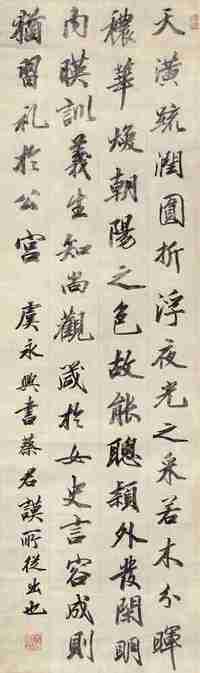 天潢疏潤圓折浮夜光之采若木分暉
穠華煥朝陽之色故能聰穎外發閑明
內暎訓義生知尚觀箴於女史言容成則
猶習礼於公宮 虞永興書蔡君謨所從出也